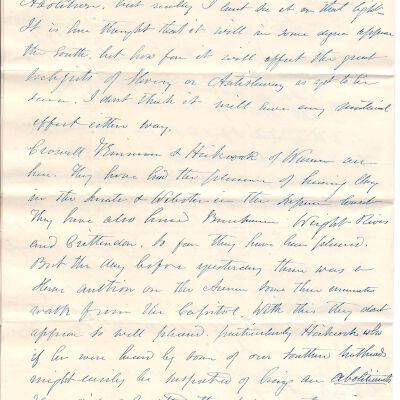 Abolition, but really I can't see it in that light.
It is here thought that it will in some degree appease
the South, but how far it will affect the great
interests of Slavery or Antislavery is yet to be
seen. I dont think it will have any material
effect either way.
Crowell & Hitchcock of Warren are
here. They have had the pleasure of hearing Clay
in the Senate & Webster in the Supreme Court
They have also heard Buchanan Wright Rives
and Crittenden. So far they have been pleased.
But the day before yesterday there was a
slave auction on the Avenue some three minutes
walk from the Capitol. With this they dont
appear so well pleased. particularly Hitchcock who
if he were heard by some of our southern hotheads
might easily be suspected of being an abolitionist